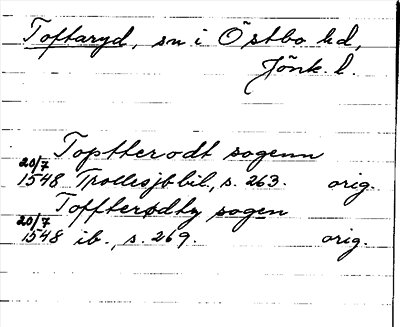 Toftaryd, sn i Östbo hd,
Jönk. l.
Toptherodt sogenn
20/7 1548 Trollesjb bil., s. 263. orig.
Toffterødhy sogen
20/7 1548 ib., s. 269. orig.